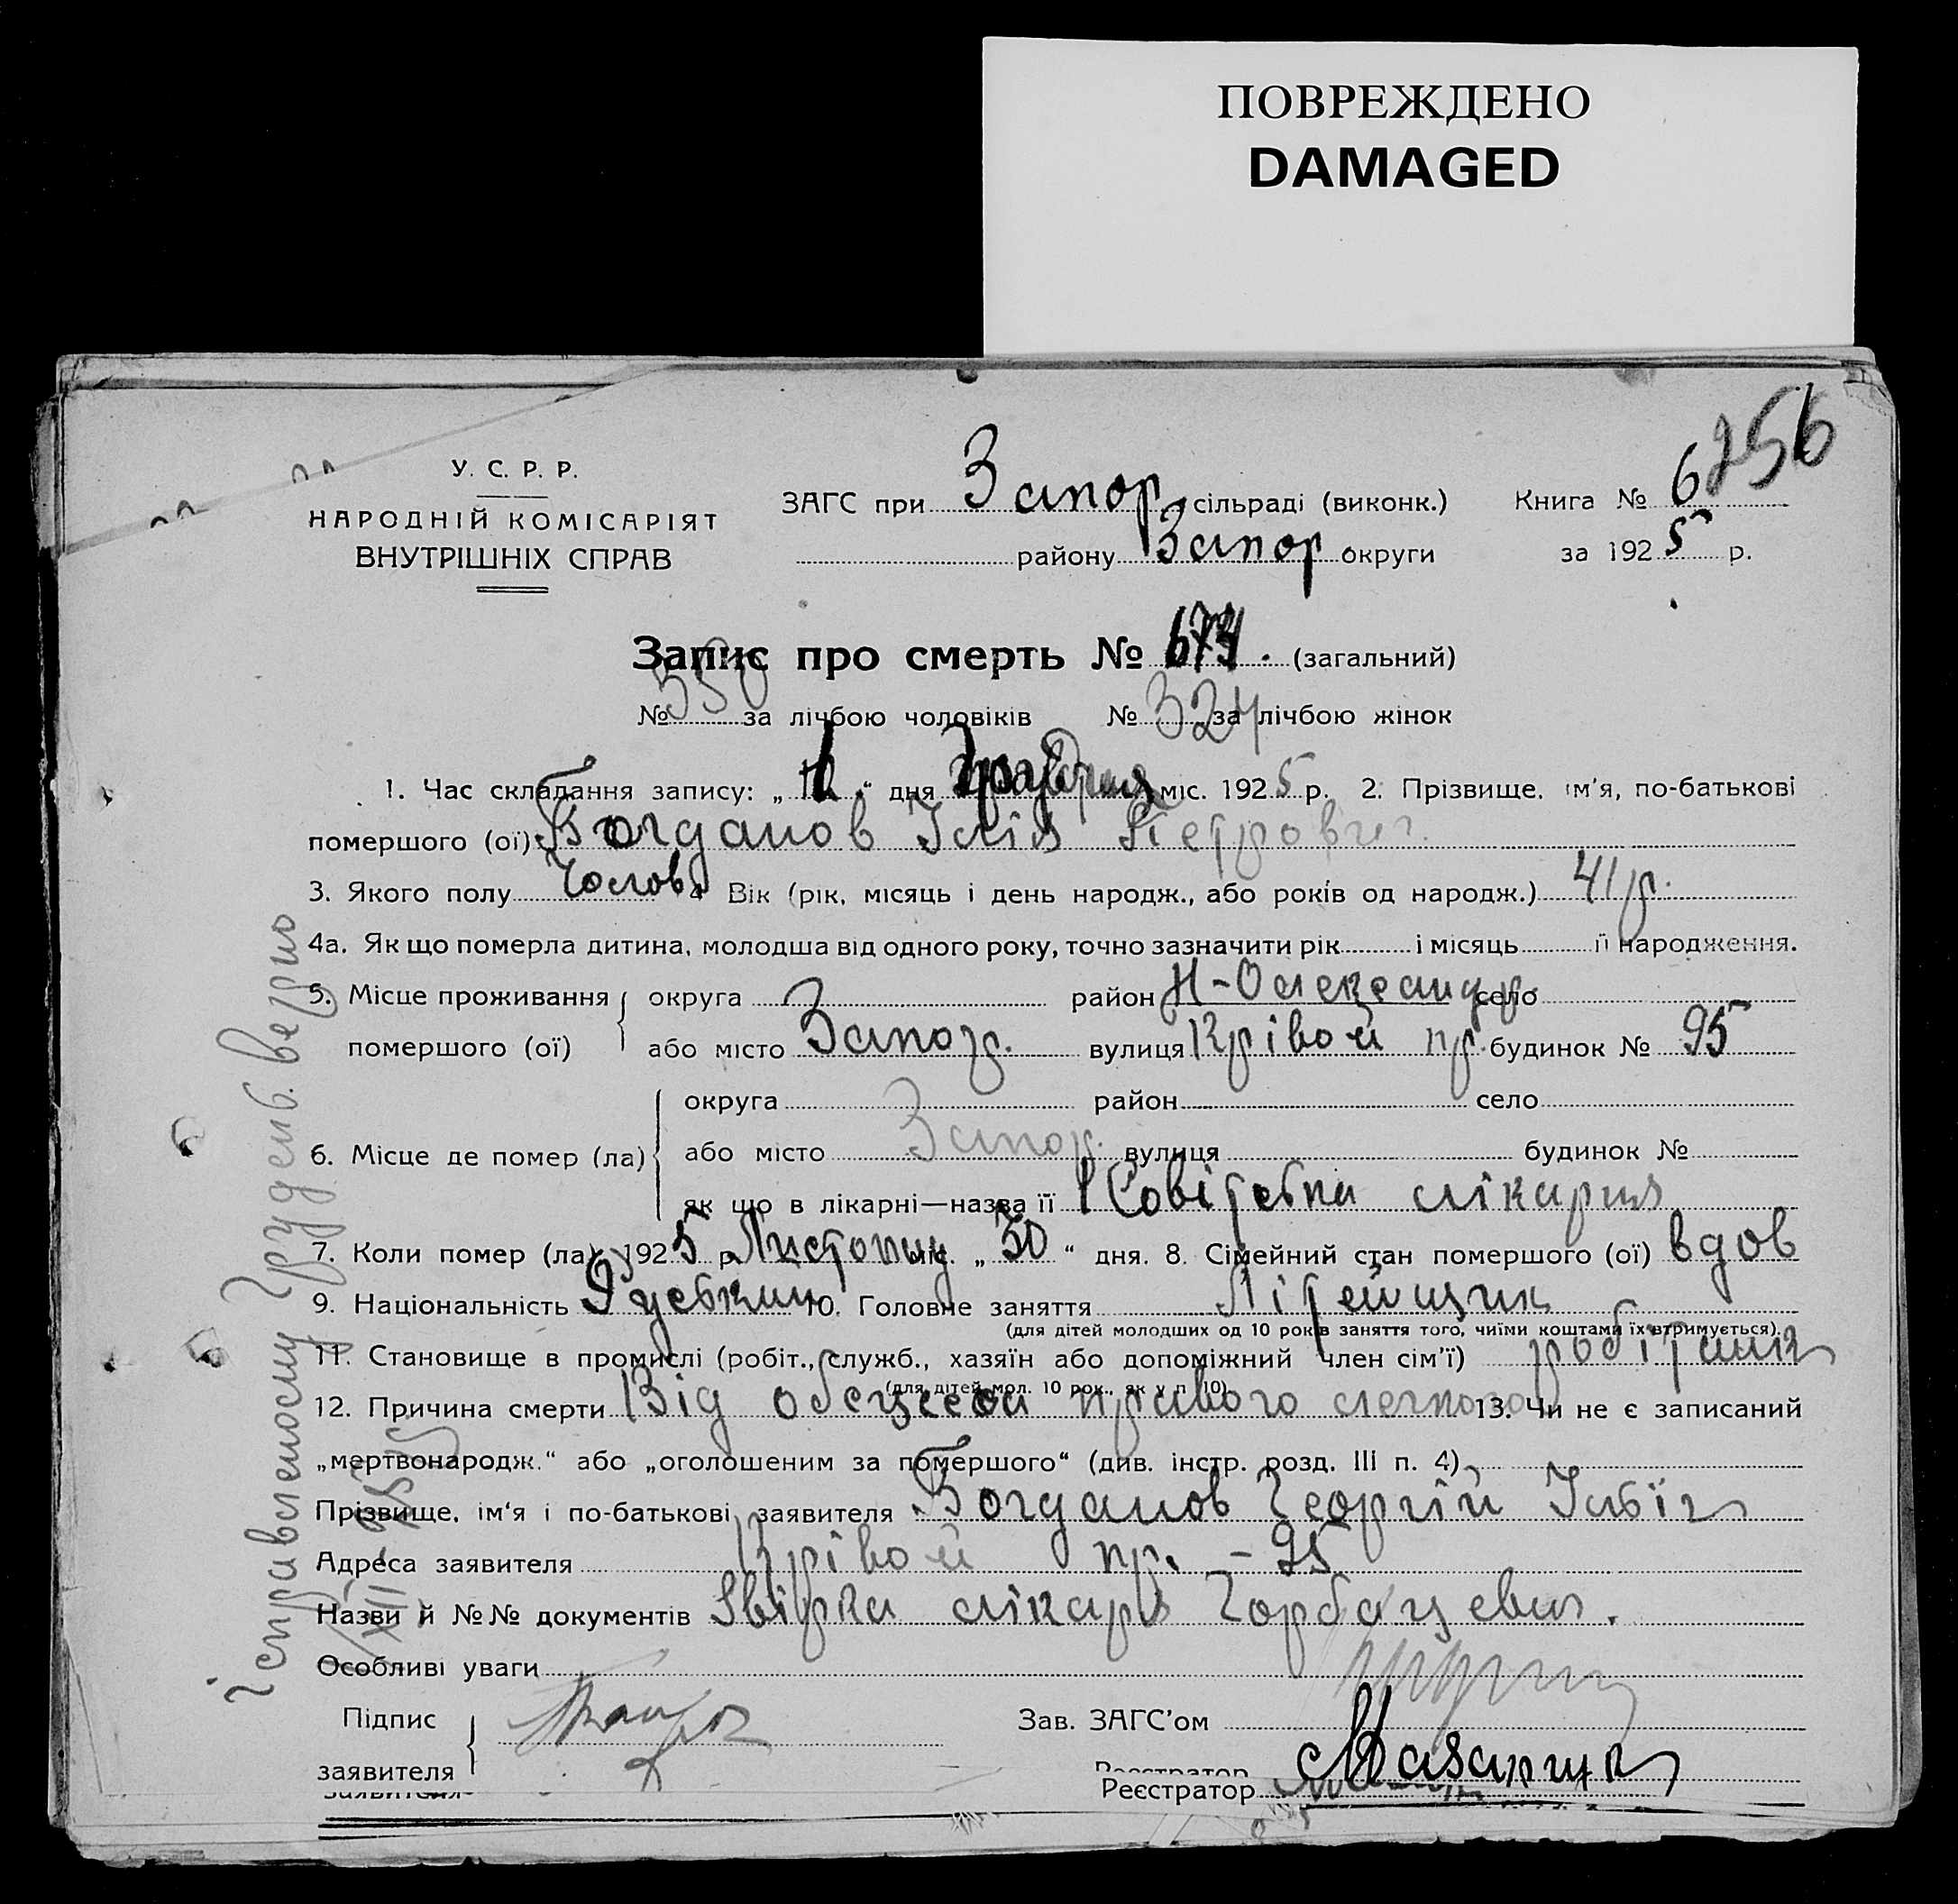 ПОВРЕЖДЕНО
DAMAGED
256
У. С. Р. Р.
НАРОДНІЙ КОМІСАРІЯТ
ВНУТРІШНІХ СПРАВ
ЗАГС при Запор. сільраді (виконк.) Книга № 6
району Запор. округи за 1925 р.
Запис про смерть № 674. (загальний)
№ 350 за лічбою чоловіків № 324 за лічбою жінок
1. Час складання запису: „ “ дня Грудня міс. 1925 р. 2. Прізвище, ім'я, по-батькові
помершого (ої) Богданов Ілія Петрович.
3. Якого полу Чолов. 4 Вік (рік, місяць і день народж., або років од народж.) 41 р.
4а. Як що померла дитина, молодша від одного року, точно зазначити рік і місяць її народження.
5. Місце проживання помершого (ої) округа район Н-Олександр. село
або місто Запор. вулиця Крівой пр. будинок № 95
6. Місце де помер (ла) округа район село
або місто Запор. вулиця будинок №
як що в лікарні—назва її 1 Совітська лікарня
7. Коли помер (ла) 1925 р. Листопад міс. „30“ дня. 8. Сімейний стан помершого (ої) вдов
9. Національність Руський 10. Головне заняття Літейщик
(для дітей молодших од 10 років заняття того, чиїми коштами їх втримується).
11. Становище в промислі (робіт., служб., хазяїн або допоміжний член сім'ї) робітник
(для дітей мол. 10 рок., як у п. 10)
12. Причина смерти Від абсцесса правого легкого 13. Чи не є записаний
„мертвонародж.“ або „оголошеним за помершого“ (див. інстр. розд. III п. 4)
Прізвище, ім'я і по-батькові заявителя Богданов Георгій Ільїч
Адреса заявителя Крівой пр. – 95
Назви й №№ документів Звістка лікаря Горбацевич.
Особливі уваги
Підпис заявителя
Зав. ЗАГС'ом
Реєстратор
Реєстратор
Ісправленому Грудень вірно